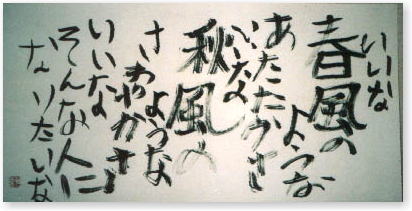 いいな
春風の
ような
あたたかさ
いいな
秋風の
ような
さわやかさ
いいな
そんな人に
なりたいな